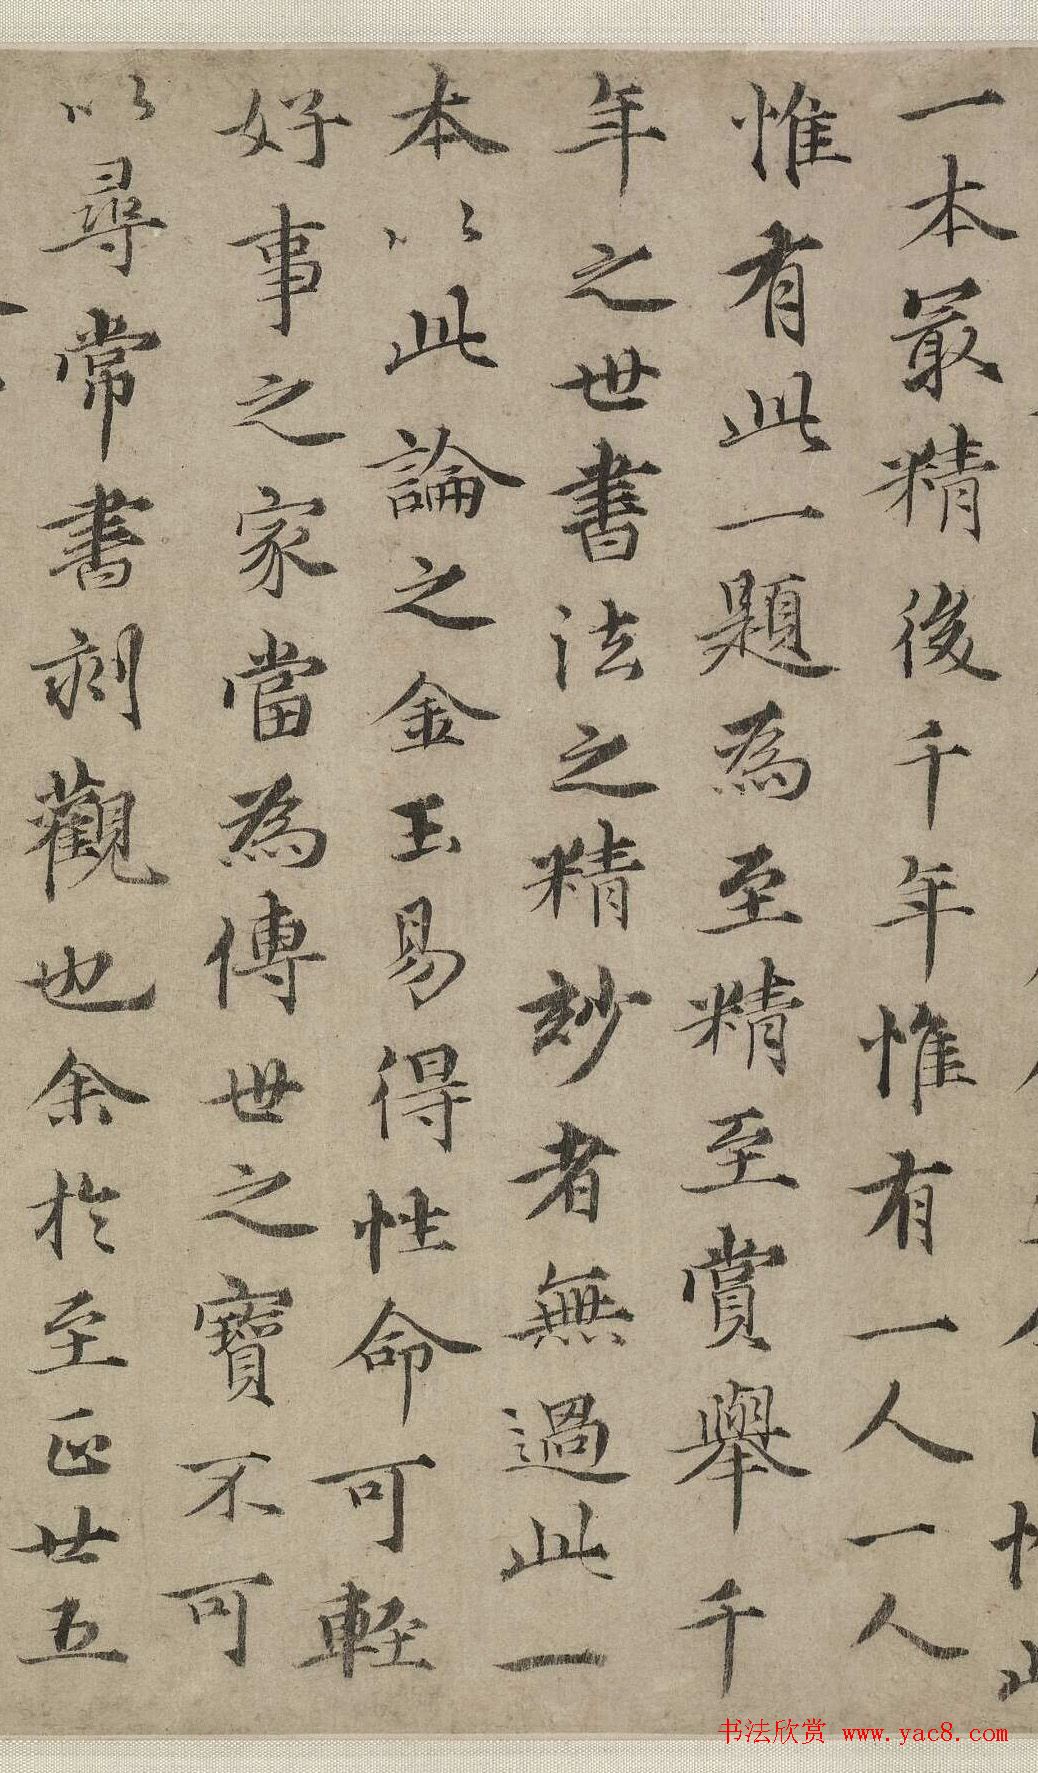 一本最精後千年惟有一人一人
惟有此一題為至精至賞舉千
年之世書法之精妙者無過此一
本以此論之金玉易得性命可輕
好事之家當為傳世之寶不可
以尋常書刻觀也余於至正廿五
书法欣赏 www.yac8.com